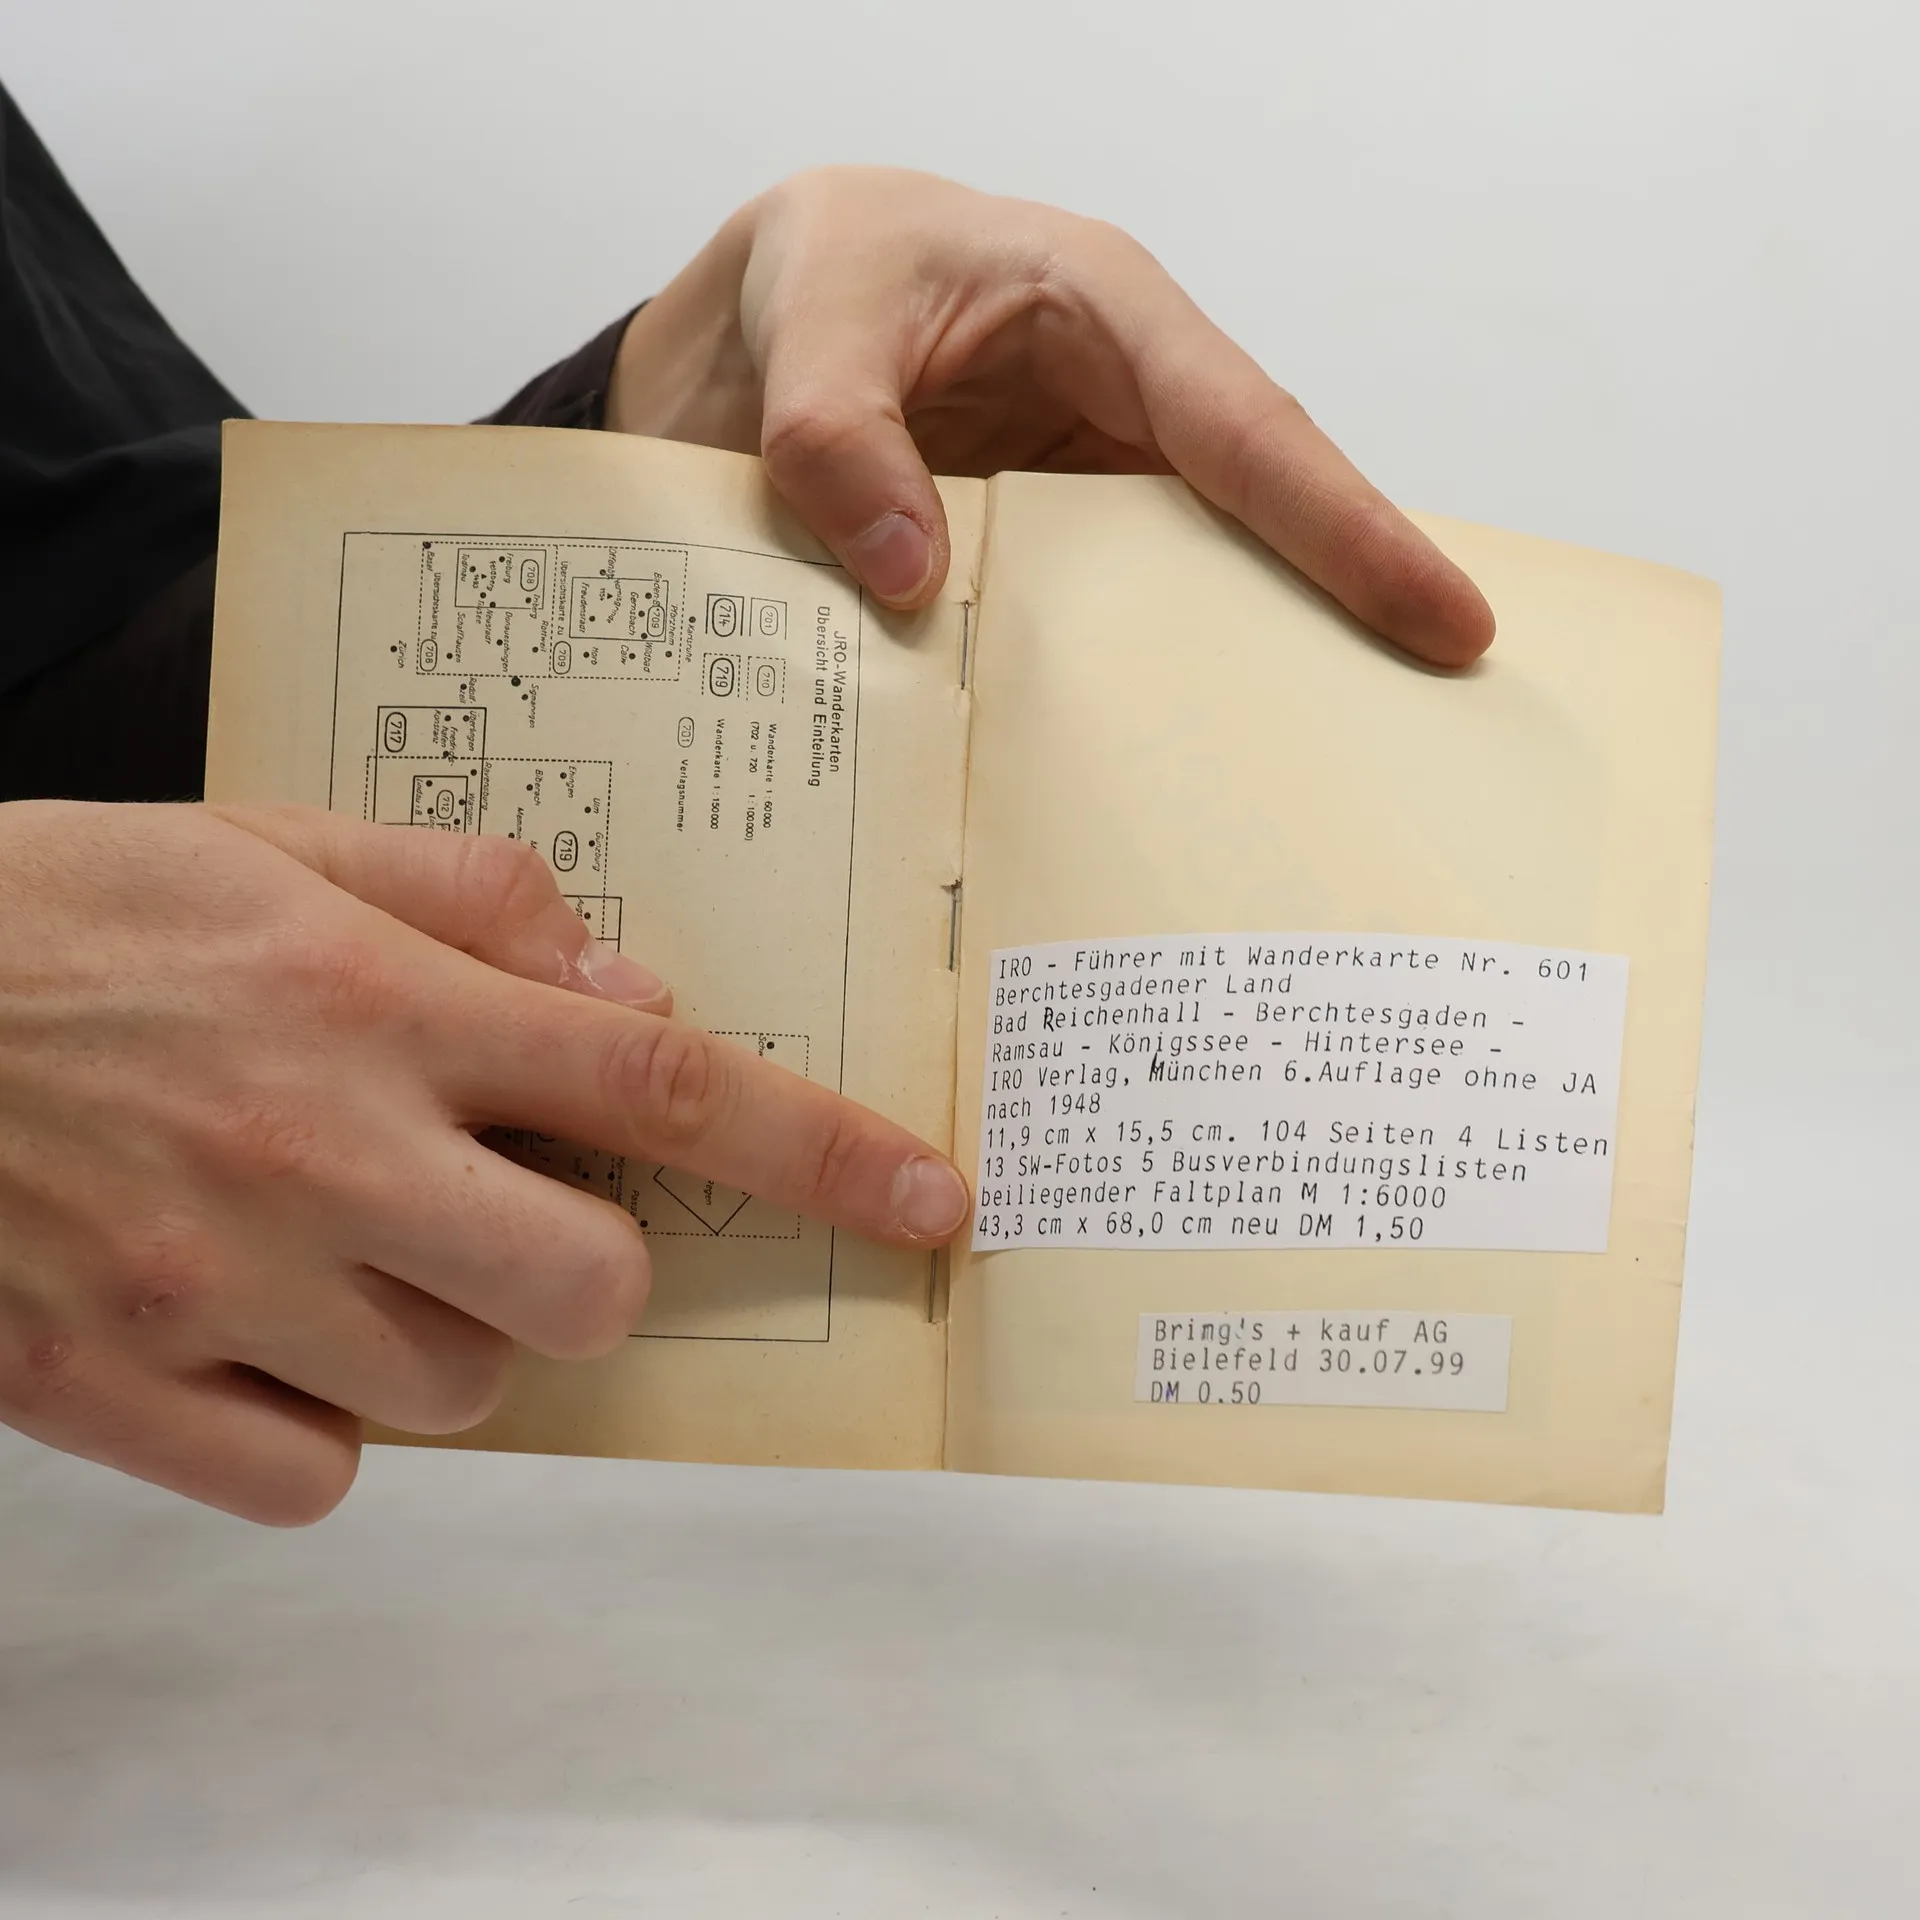 JRO-Wanderkarten
Übersicht und Einteilung
701
710
Wanderkarte 1:60000
(702 u. 720 1:100000)
714
719
Wanderkarte 1:150000
701 Verlagsnummer
Karlsruhe
Pforzheim
709
Gernsbach
Wildbad
Calw
Freudenstadt
Horb
Übersichtskarte zu 709
708
Freiburg
Feldberg
Todtnau
Neustadt
Donaueschingen
Rottweil
Schaffhausen
Basel
Übersichtskarte zu 708
Zürich
Sigmaringen
Überlingen
Konstanz
717
Ravensburg
Wangen
712
Biberach
Ehingen
Ulm
Günzburg
719
IRO - Führer mit Wanderkarte Nr. 601
Berchtesgadener Land
Bad Reichenhall - Berchtesgaden -
Ramsau - Königssee - Hintersee -
IRO Verlag, München 6.Auflage ohne JA
nach 1948
11,9 cm x 15,5 cm. 104 Seiten 4 Listen
13 SW-Fotos 5 Busverbindungslisten
beiliegender Faltplan M 1:6000
43,3 cm x 68,0 cm neu DM 1,50
Bring's + kauf AG
Bielefeld 30.07.99
DM 0.50